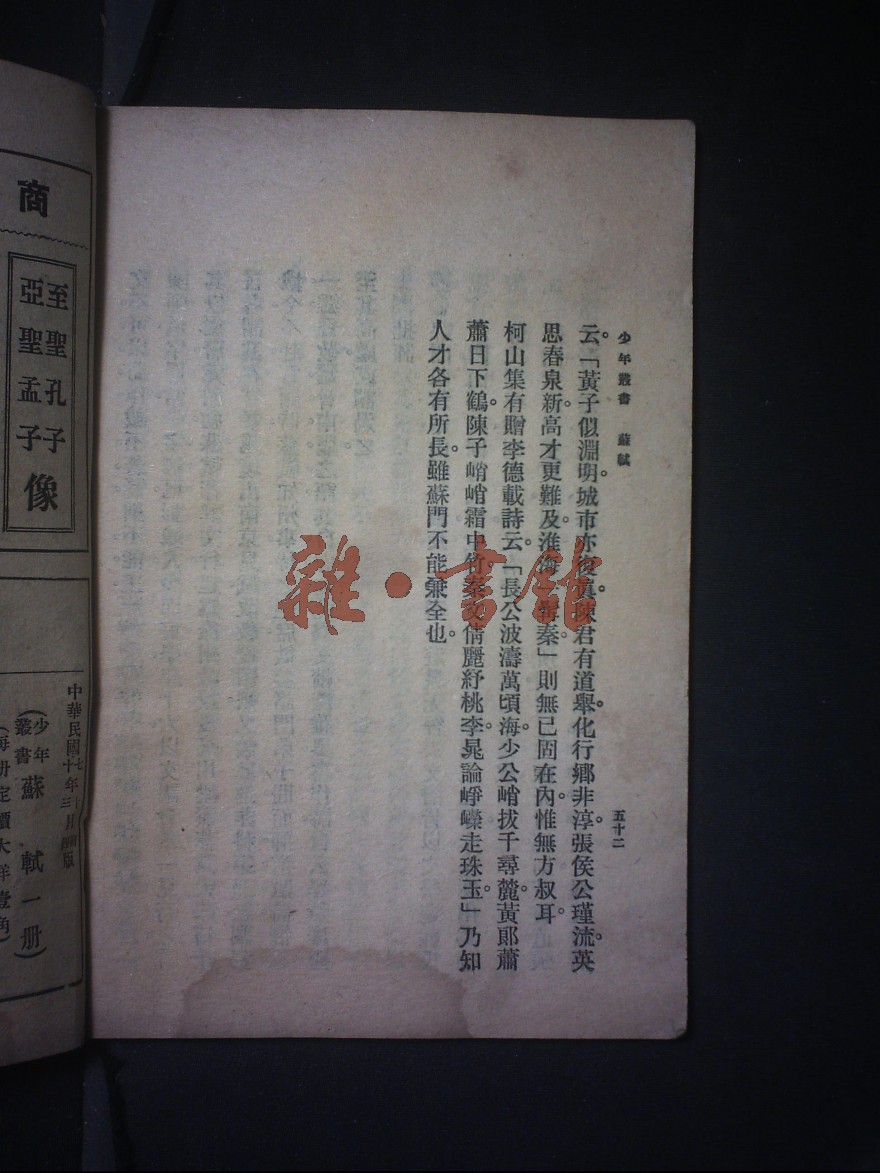 少年叢書 蘇軾
五十二
云。「黃子似淵明。城市亦復眞。陳君有道舉。化行鄉非淳。張侯公瑾流。英
思春泉新。高才更難及。淮海一髯秦。」則無已固在內。惟無方叔耳。
柯山集有贈李德載詩云。「長公波濤萬頃海。少公峭拔千尋麓。黃郞蕭
蕭日下鶴。陳子峭峭霜中竹。秦文倩麗紓桃李。晁論崢嶸走珠玉。」乃知
人才各有所長。雖蘇門不能兼全也。
商
至聖孔子
亞聖孟子
像
中華民國
少年
叢書
蘇軾一册)
(每册定價大洋壹角)
雜·書館